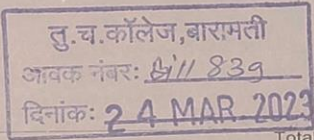 तु.च.कॉलेज,बारामती
आवक नंबर: 839
दिनांक: 24 MAR 2023
Tota